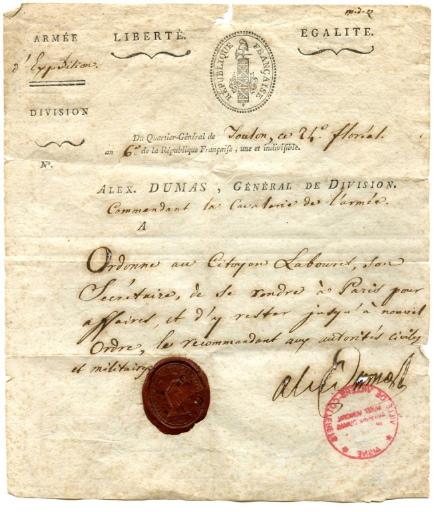 ARMÉE
LIBERTÉ.
EGALITE.
d'Expédition.
RÉPUBLIQUE FRANÇAISE
DIVISION
Du Quartier-Général de Toulon, ce 24e floréal
an 6e de la République Française, une et indivisible.
Nº.
ALEX. DUMAS, GÉNÉRAL DE DIVISION.
Commandant la Cavalerie de l'armée.
A
Ordonne au Citoyen Labouret, son
Secrétaire, de se rendre à Paris pour
affaires, et d'y rester jusqu'à nouvel
Ordre, le recommandant aux autorités civiles
et militaires
Alex Dumas